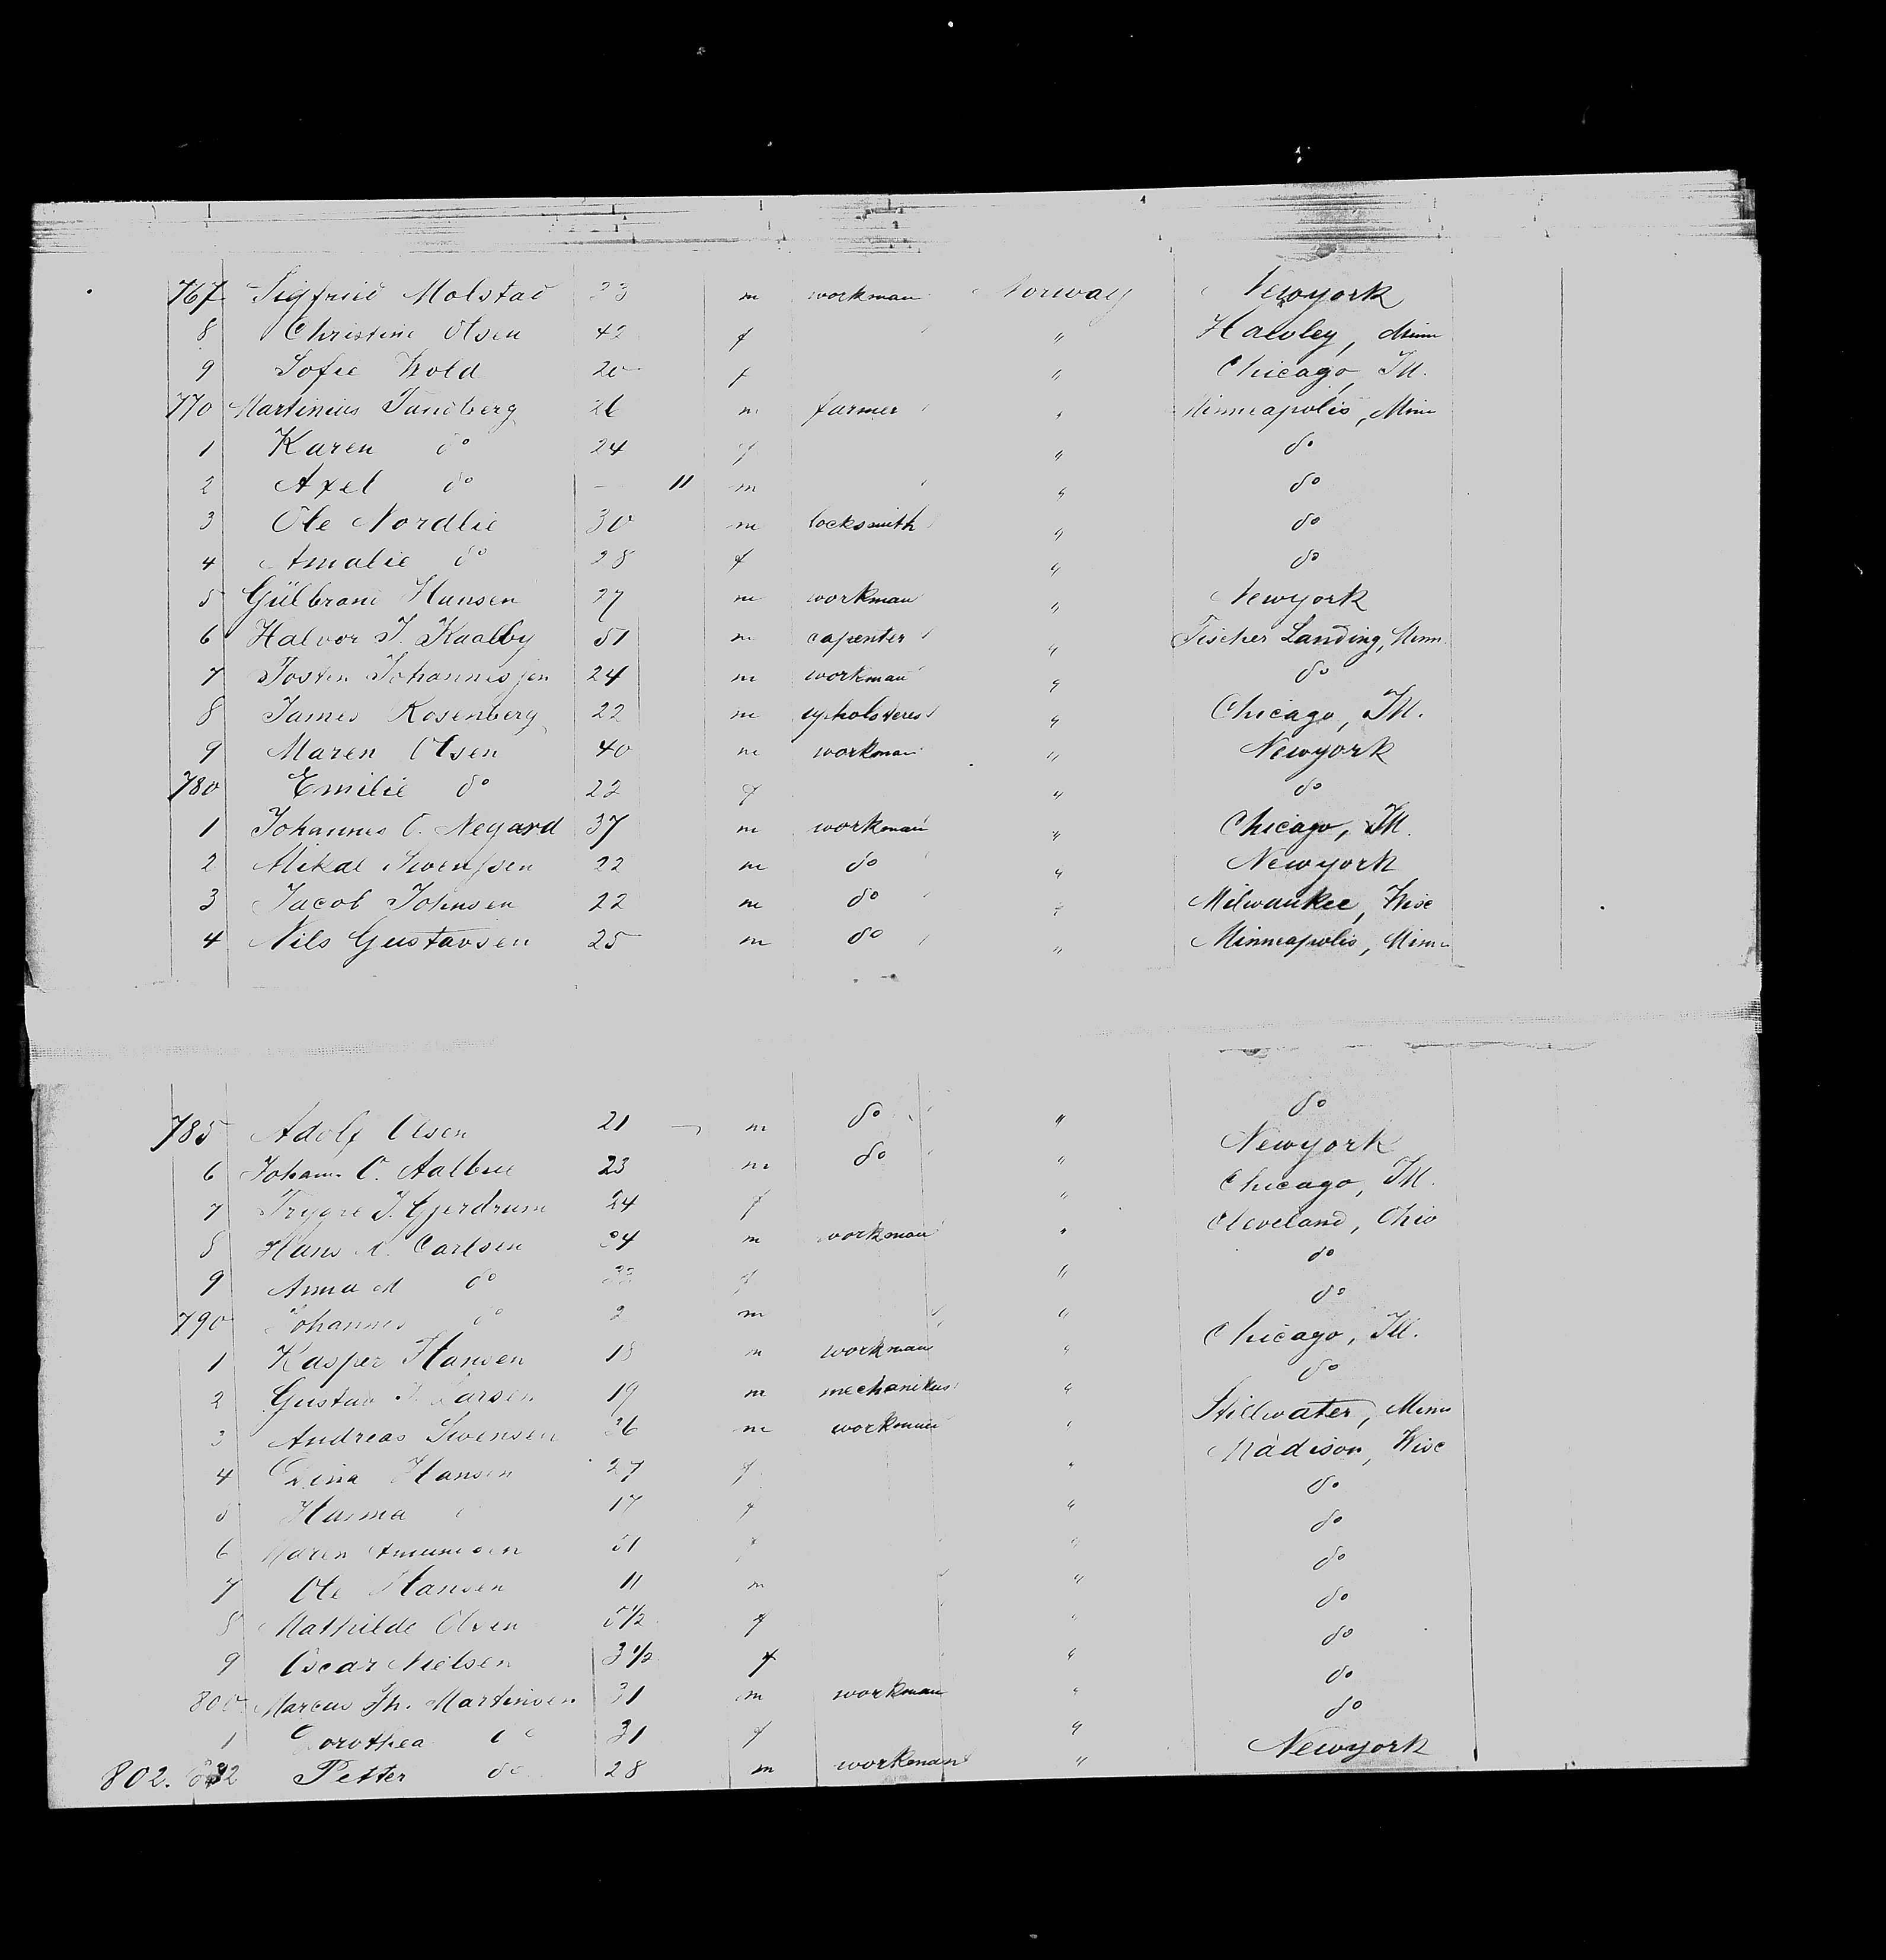 767 Sigfried Molstad 23 m workman Norway Newyork
8 Christine Olsen 42 f " Hawley, Minn
9 Sofie Wold 20 f " Chicago, Ill.
770 Martinius Sundberg 26 m farmer " Minneapolis, Minn
1 Karen do 24 f " do
2 Axel do — 11 m " do
3 Ole Nordlie 30 m locksmith " do
4 Amalie do 28 f " do
5 Gülbrand Hansen 27 m workman " Newyork
6 Halvor J. Kaalby 51 m capenter " Fischer Landing, Minn.
7 Josten Johannessen 24 m workman " do
8 James Rosenberg 22 m upholsterer " Chicago, Ill.
9 Maren Olsen 40 m workman " Newyork
780 Emilie do 22 f " do
1 Johannes O. Negard 37 m workman " Chicago, Ill.
2 Mikal Swenssen 22 m do " Newyork
3 Jacob Johnsen 22 m do " Milwaukee, Wisc
4 Nils Gustavsen 25 m do " Minneapolis, Minn
785 Adolf Olsen 21 m do " do
6 Johan O. 23 m do " Newyork
7 Trygve J. Gjerdrum 24 f " Chicago, Ill.
8 Hans Carlsen 34 m workman " Cleveland, Ohio
9 Anna M do f " do
790 Johannes do 2 m " do
1 Kasper Hansen 18 m workman " Chicago, Ill.
2 Gustav Larsen 19 m mechanikus " do
3 Andreas Swensen 26 m workman " Stillwater, Minn
4 Hansen 27 f " Madison, Wisc
5 Hanna 17 f " do
6 Maren 51 f " do
7 Ole Hansen 11 m " do
8 Mathilde Olsen 5 1/2 f " do
9 Oscar Nielsen 3 1/2 f " do
800 Marcus Th. Martinsen 31 m workman " do
1 Dorothea do 31 f " do
802. 2 Petter do 28 m workman " Newyork